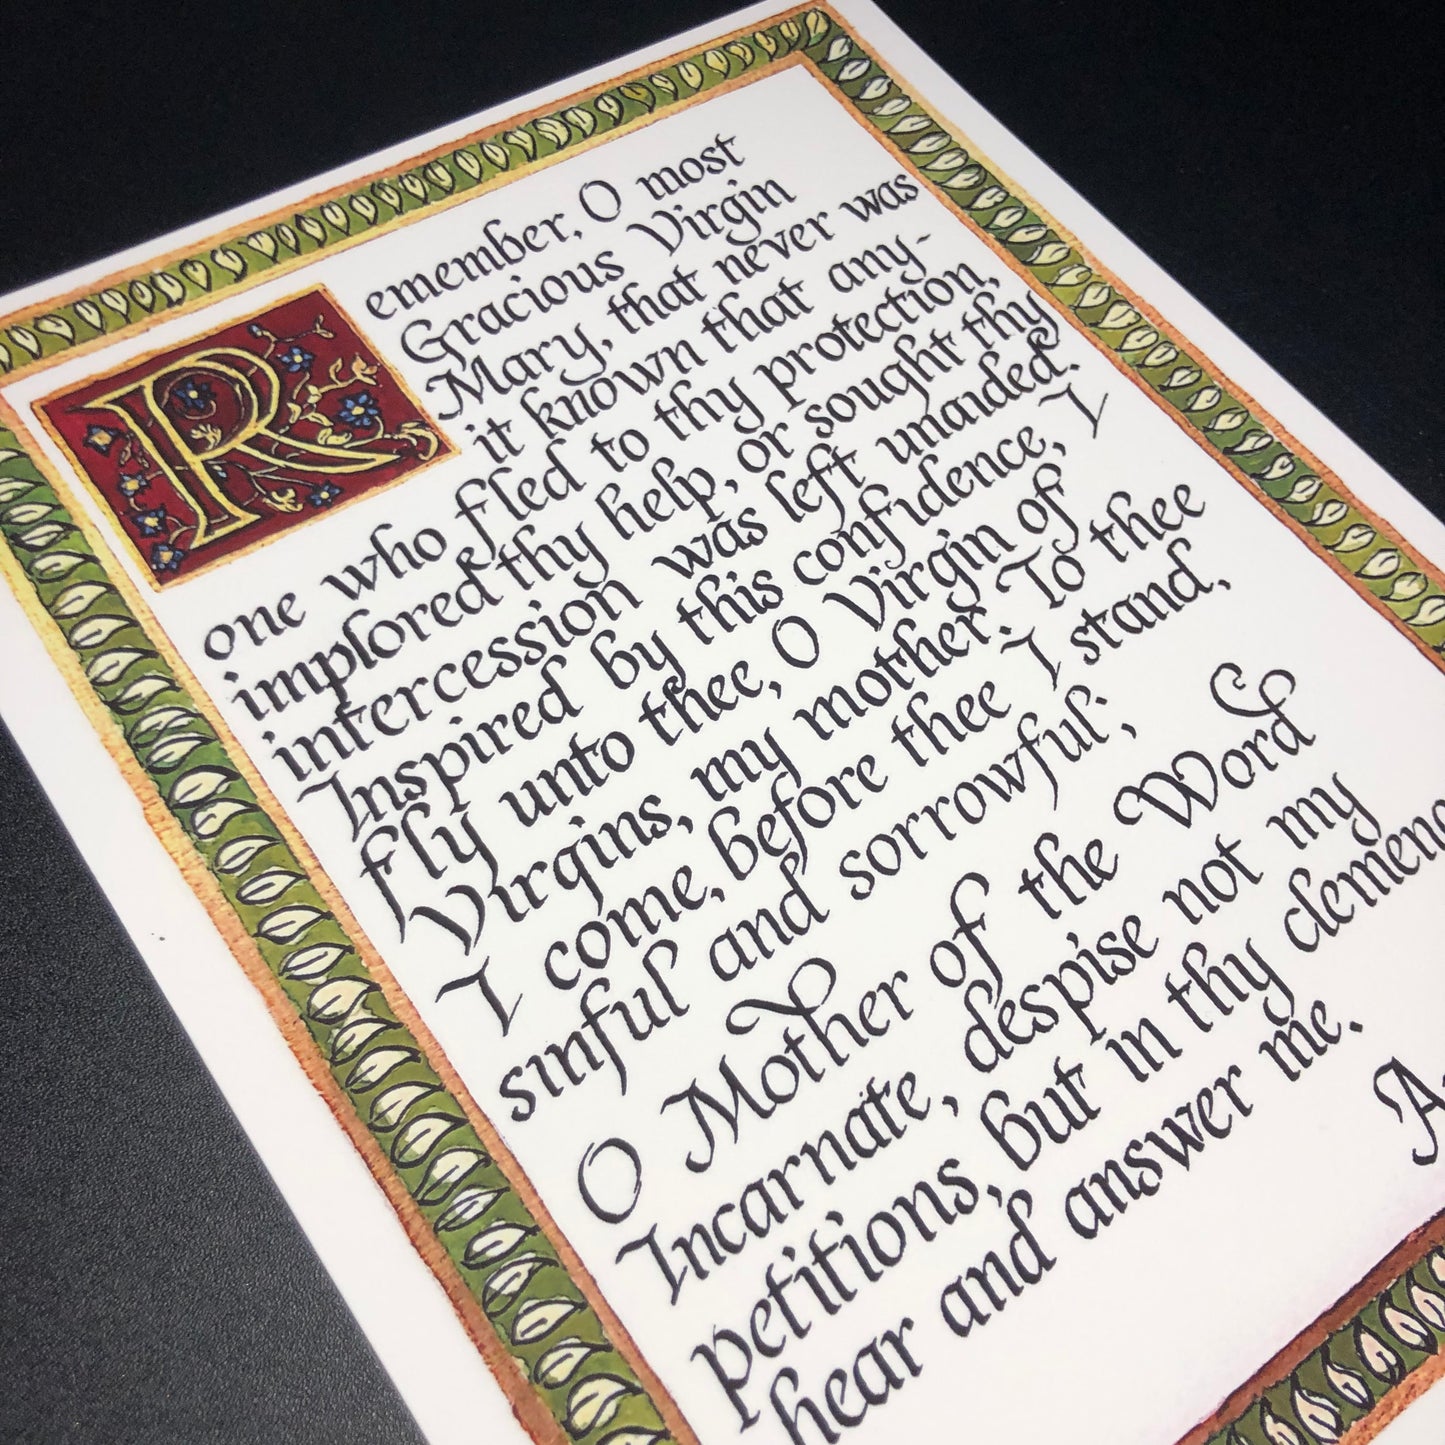 Remember, O most
Gracious Virgin
Mary, that never was
it known that any-
one who fled to thy protection,
implored thy help, or sought thy
intercession was left unaided.
Inspired by this confidence, I
fly unto thee, O Virgin of
Virgins, my mother. To thee
I come, before thee I stand,
sinful and sorrowful;
O Mother of the Word
Incarnate, despise not my
petitions, but in thy clemenc
hear and answer me.
A